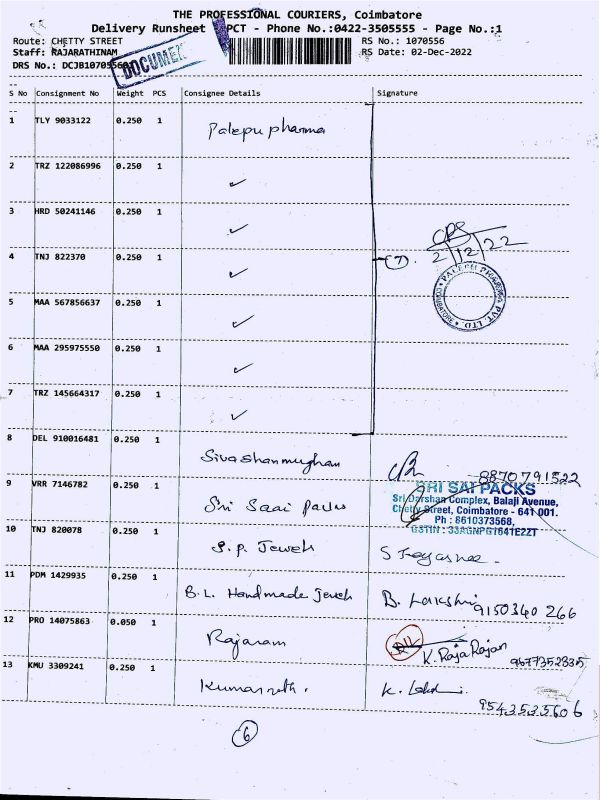 THE PROFESSIONAL COURIERS, Coimbatore
Delivery Runsheet PCT - Phone No.:0422-3505555 - Page No.:1
Route: CHETTY STREET RS No.: 1070556
Staff: RAJARATHINAM RS Date: 02-Dec-2022
DRS No.: DCJB1070556
DOCUMEN
S No Consignment No Weight PCS Consignee Details Signature
1 TLY 9033122 0.250 1 Palepu pharma
2 TRZ 122086996 0.250 1 ✓
3 HRD 50241146 0.250 1 ✓
2/12/22
4 TNJ 822370 0.250 1 ✓ (7).
PALEPU PHARMA PVT. LTD. COIMBATORE
5 MAA 567856637 0.250 1 ✓
6 MAA 295975550 0.250 1 ✓
7 TRZ 145664317 0.250 1 ✓
8 DEL 910016481 0.250 1 Sivashanmugham 8870791522
9 VRR 7146782 0.250 1 Sri Saai Packs
SRI SAI PACKS
Sri Darshan Complex, Balaji Avenue,
Chetty Street, Coimbatore - 641 001.
Ph : 8610373568,
GSTIN : 33AGNPG1641E2ZT
10 TNJ 820078 0.250 1 S.P. Jewels
11 PDM 1429935 0.250 1 B.L. Handmade Jewels B. Lakshmi 9150340 266
12 PRO 14075863 0.050 1 Rajaram K. Raja Rajan 9677352835
13 KMU 3309241 0.250 1 9543535606
6